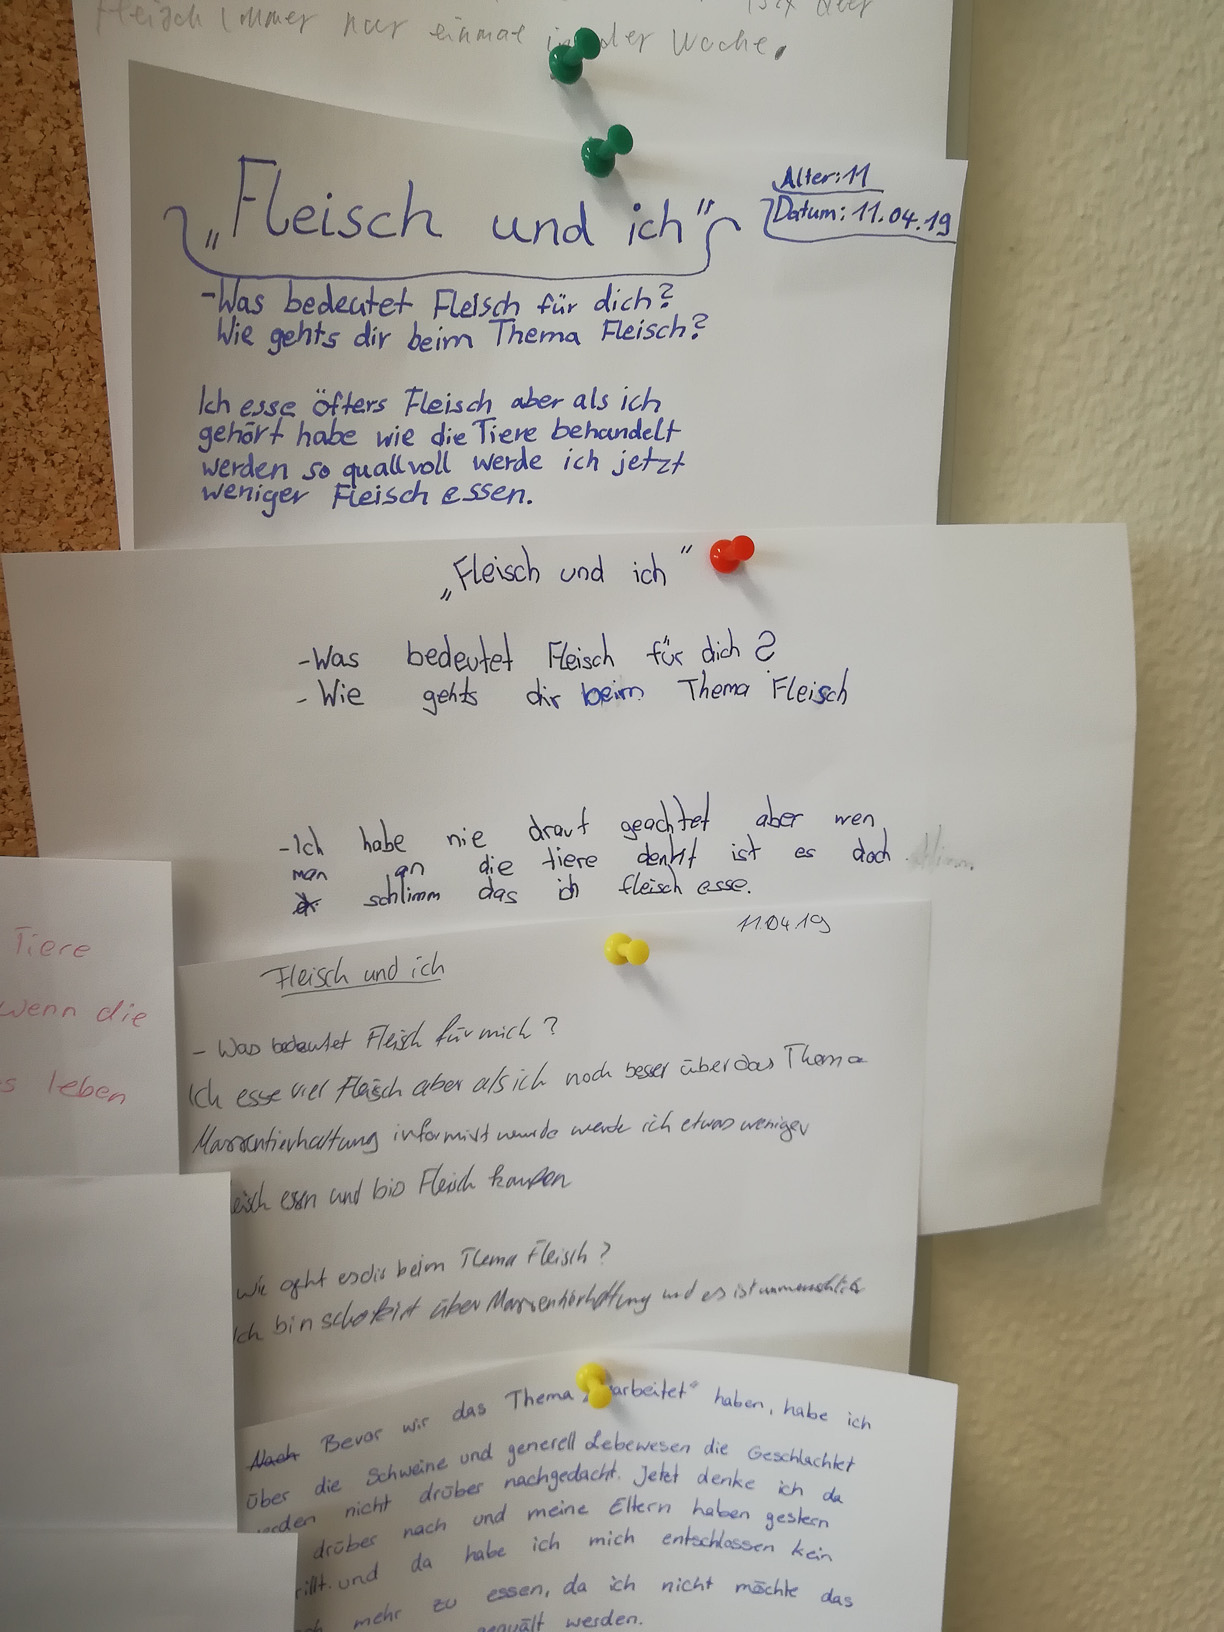 Fleisch immer nur einmal in der Woche.
„Fleisch und ich"
Alter: 11
Datum: 11.04.19
-Was bedeutet Fleisch für dich?
Wie gehts dir beim Thema Fleisch?
Ich esse öfters Fleisch aber als ich
gehört habe wie die Tiere behandelt
werden so quallvoll werde ich jetzt
weniger Fleisch essen.
„Fleisch und ich"
-Was bedeutet Fleisch für dich?
- Wie gehts dir beim Thema Fleisch
-Ich habe nie drauf geachtet aber wen
man an die tiere denkt ist es doch
schlimm das ich fleisch esse.
Tiere
wenn die
s leben
11.04.19
Fleisch und ich
- Was bedeutet Fleisch für mich?
Ich esse viel Fleisch aber als ich noch besser über das Thema
Massentierhaltung informirt wurde werde ich etwas weniger
eisch essn und bio Fleisch kaufen
wie geht es dir beim Thema Fleisch?
Ich bin schokirt über Massentierhaltung und es ist unmenschlich
Thema „ arbeitet" haben, habe ich
Nach Bevor wir das
über die Schweine und generell Lebewesen die Geschlachtet
erden nicht drüber nachgedacht. Jetzt denke ich da
drüber nach und meine Eltern haben gestern
rillt und da habe ich mich entschlossen kein
ch mehr zu essen, da ich nicht möchte das
gequält werden.